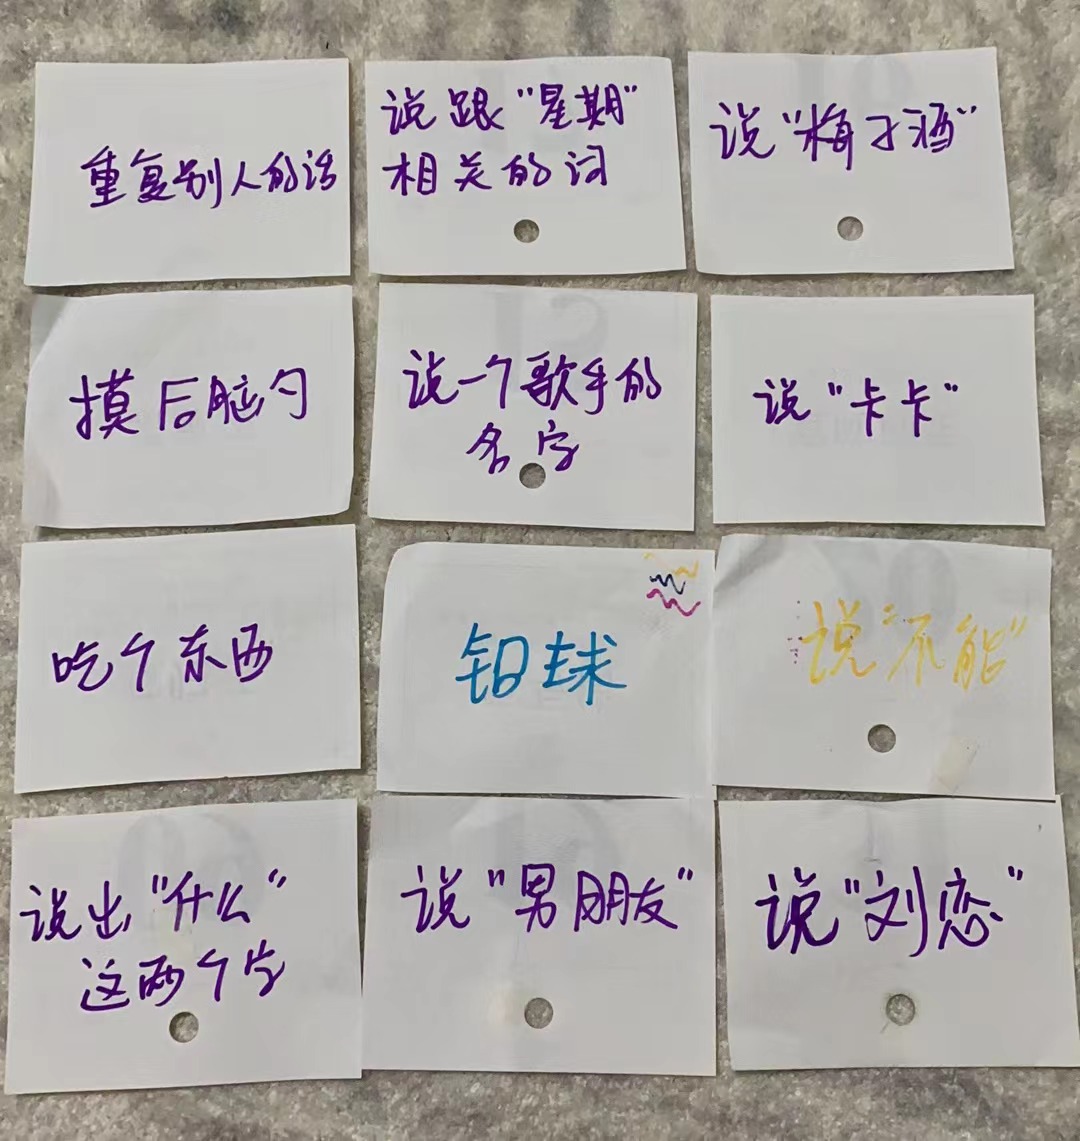 重复别人的话
说跟"星期"
相关的词
说"梅子酒"
摸后脑勺
说一个歌手的
名字
说"卡卡"
吃个东西
铅球
说"不能"
说出"什么"
这两个字
说"男朋友"
说"刘恋"